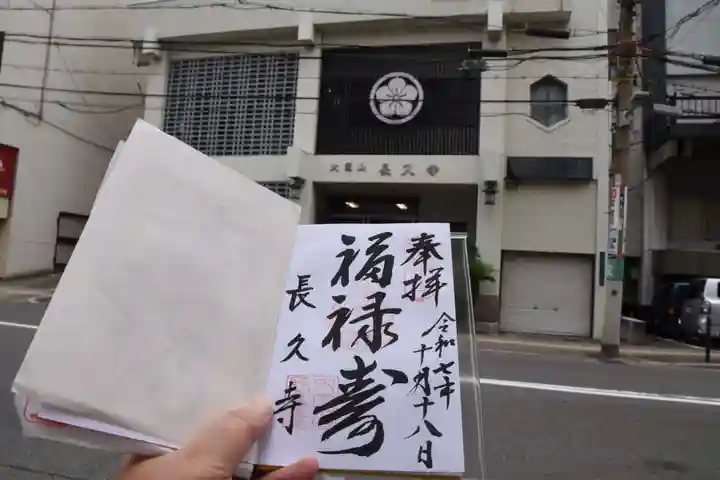 奉拝
令和七年
十月十八日
福禄寿
長久寺
長久寺